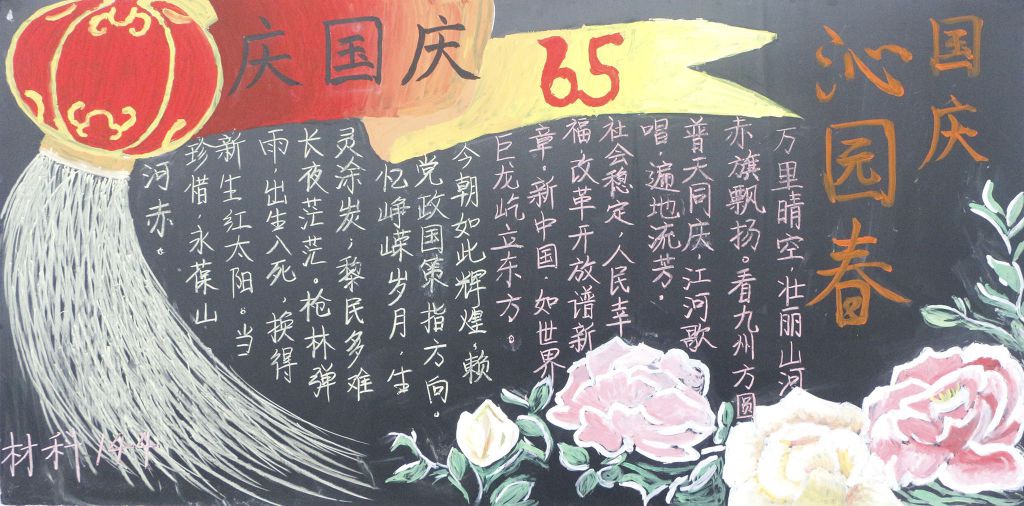 庆国庆
65
国庆
沁园春
万里晴空,壮丽山河
赤旗飘扬。看九州方圆
普天同庆,江河歌
唱,遍地流芳。
社会稳定,人民幸
福,改革开放谱新
章。新中国,如世界
巨龙屹立东方。
今朝如此辉煌,赖
党政国策指方向。
忆峥嵘岁月,生
灵涂炭,黎民多难
长夜茫茫。枪林弹
雨,出生入死,换得
新生红太阳。当
珍惜,永葆山
河赤。
材科144